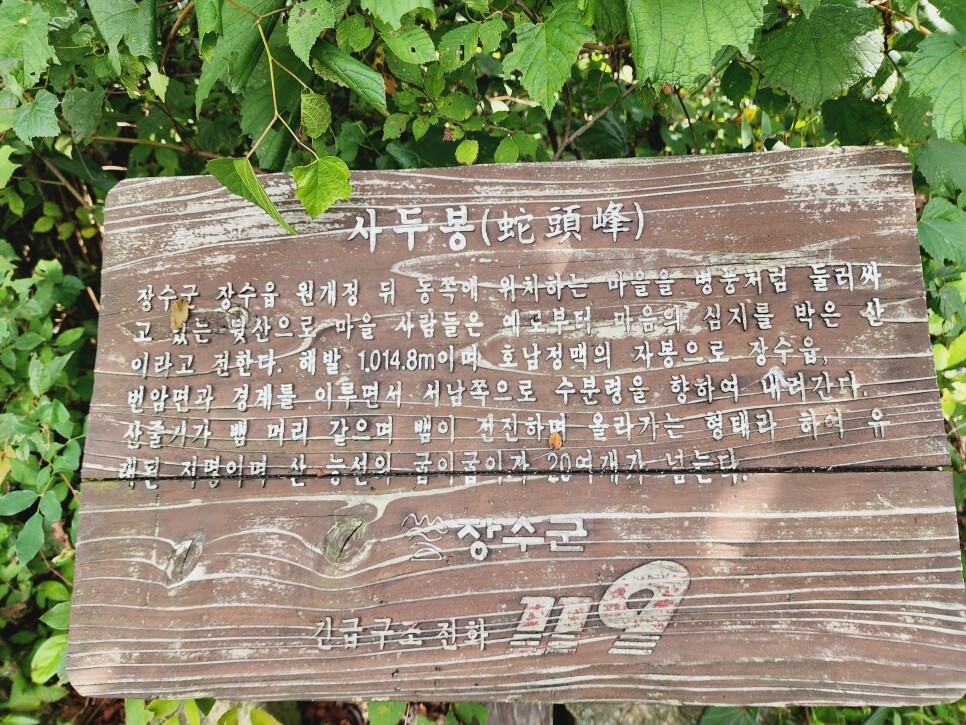 사두봉(蛇頭峰)
장수군 장수읍 원개정 뒤 동쪽에 위치하는 마을을 병풍처럼 둘러싸
고 있는 뒷산으로 마을 사람들은 예로부터 마음의 심지를 박은 산
이라고 전한다. 해발 1,014.8m이며 호남정맥의 자봉으로 장수읍,
번암면과 경계를 이루면서 서남쪽으로 수분령을 향하여 내려간다.
산줄기가 뱀 머리 같으며 뱀이 전진하며 올라가는 형태라 하여 유
래된 지명이며 산 능선의 굽이굽이가 20여개가 넘는다.
장수군
긴급구조 전화 119